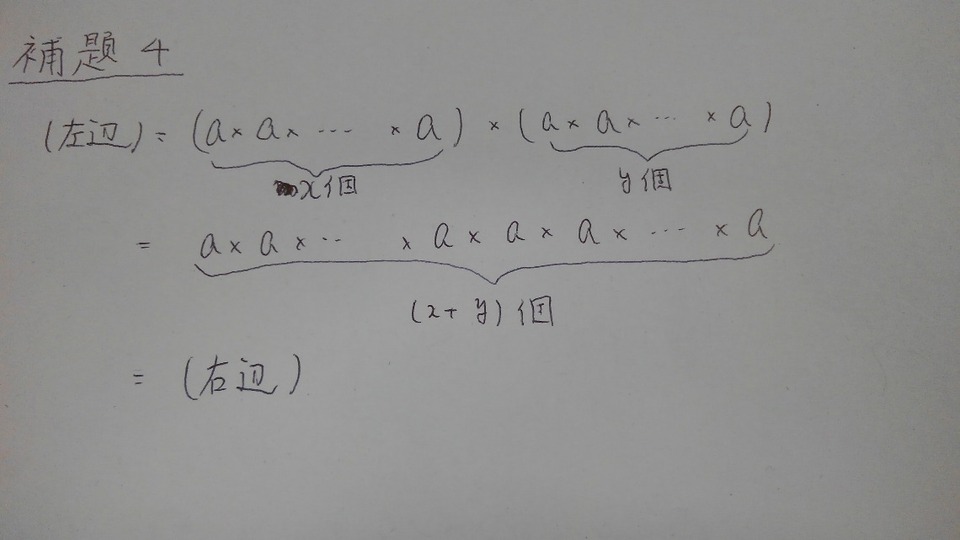 補題4
(左辺) = (a × a × … × a) × (a × a × … × a)
x個 y個
= a × a × … × a × a × a × … × a
(x + y) 個
= (右辺)